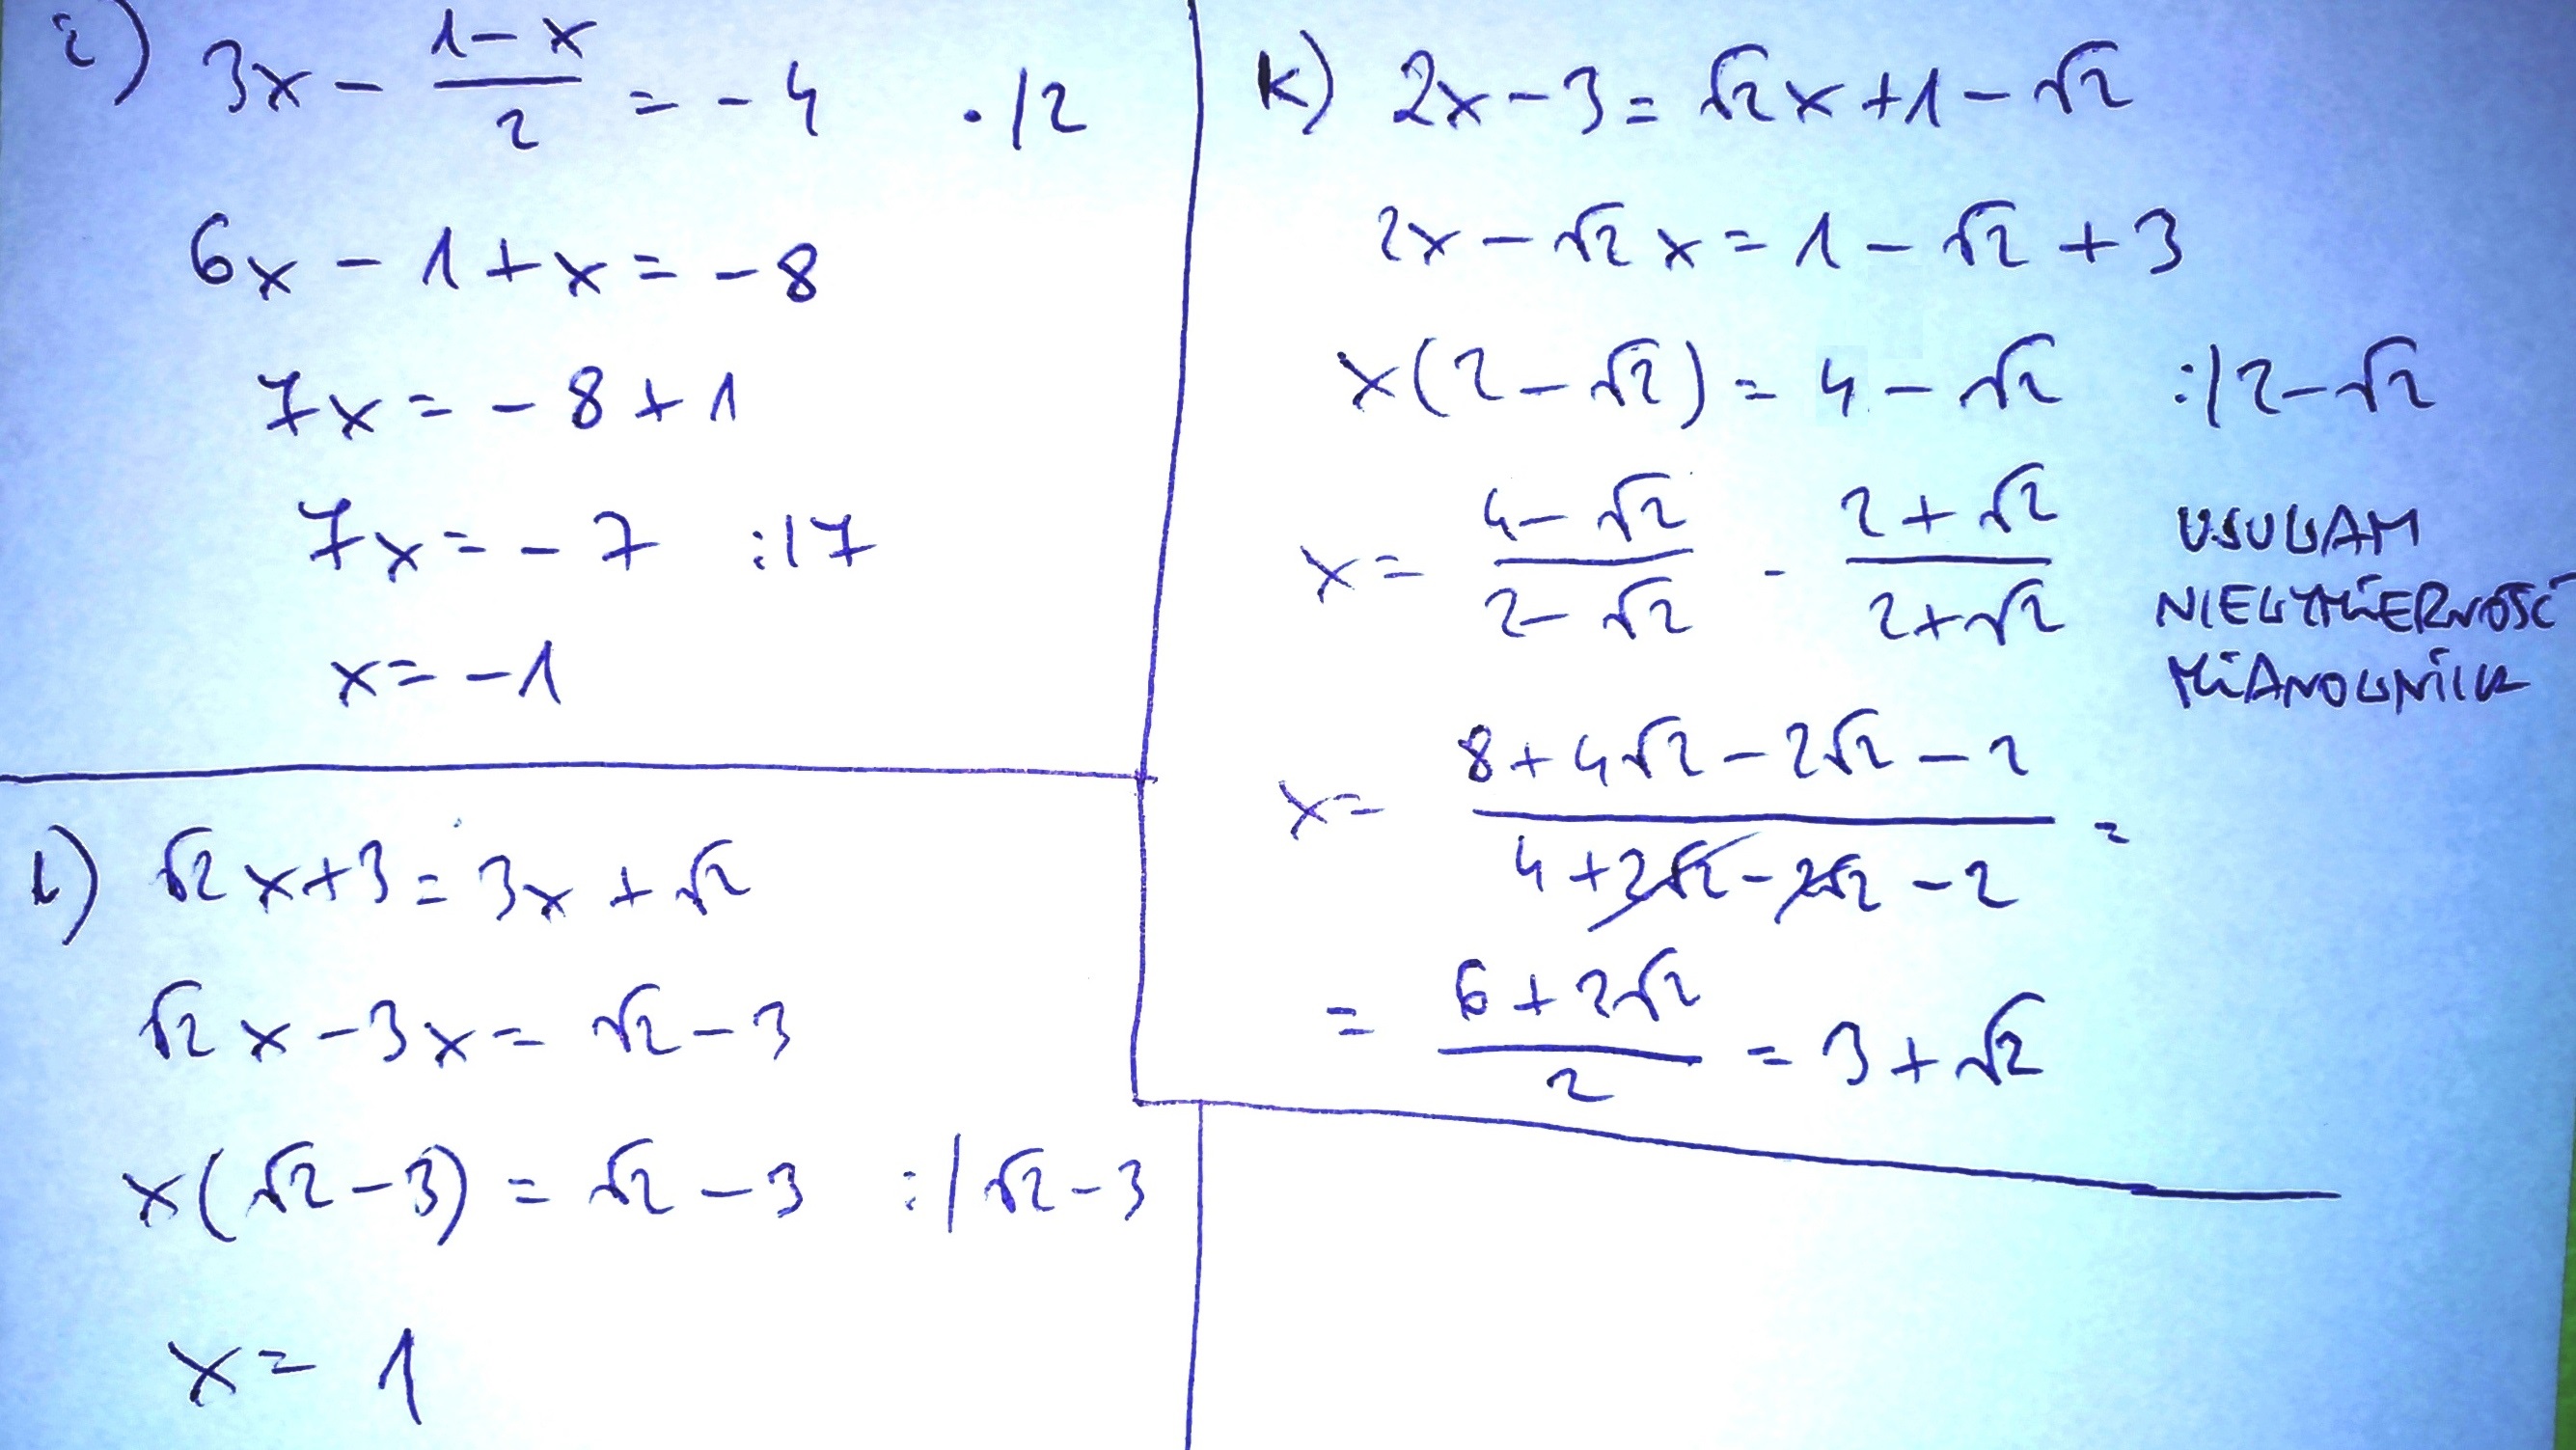 i) 3x - (1-x)/2 = -4   ·/2
6x - 1 + x = -8
7x = -8 + 1
7x = -7   :/7
x = -1
l) √2 x + 3 = 3x + √2
√2 x - 3x = √2 - 3
x(√2 - 3) = √2 - 3   :/√2 - 3
x = 1
k) 2x - 3 = √2 x + 1 - √2
2x - √2 x = 1 - √2 + 3
x(2 - √2) = 4 - √2   :/2 - √2
x = (4 - √2)/(2 - √2) · (2 + √2)/(2 + √2)
USUWAM
NIEWYMIERNOŚĆ
MIANOWNIKA
x = (8 + 4√2 - 2√2 - 2)/(4 + 2√2 - 2√2 - 2) =
= (6 + 2√2)/2 = 3 + √2